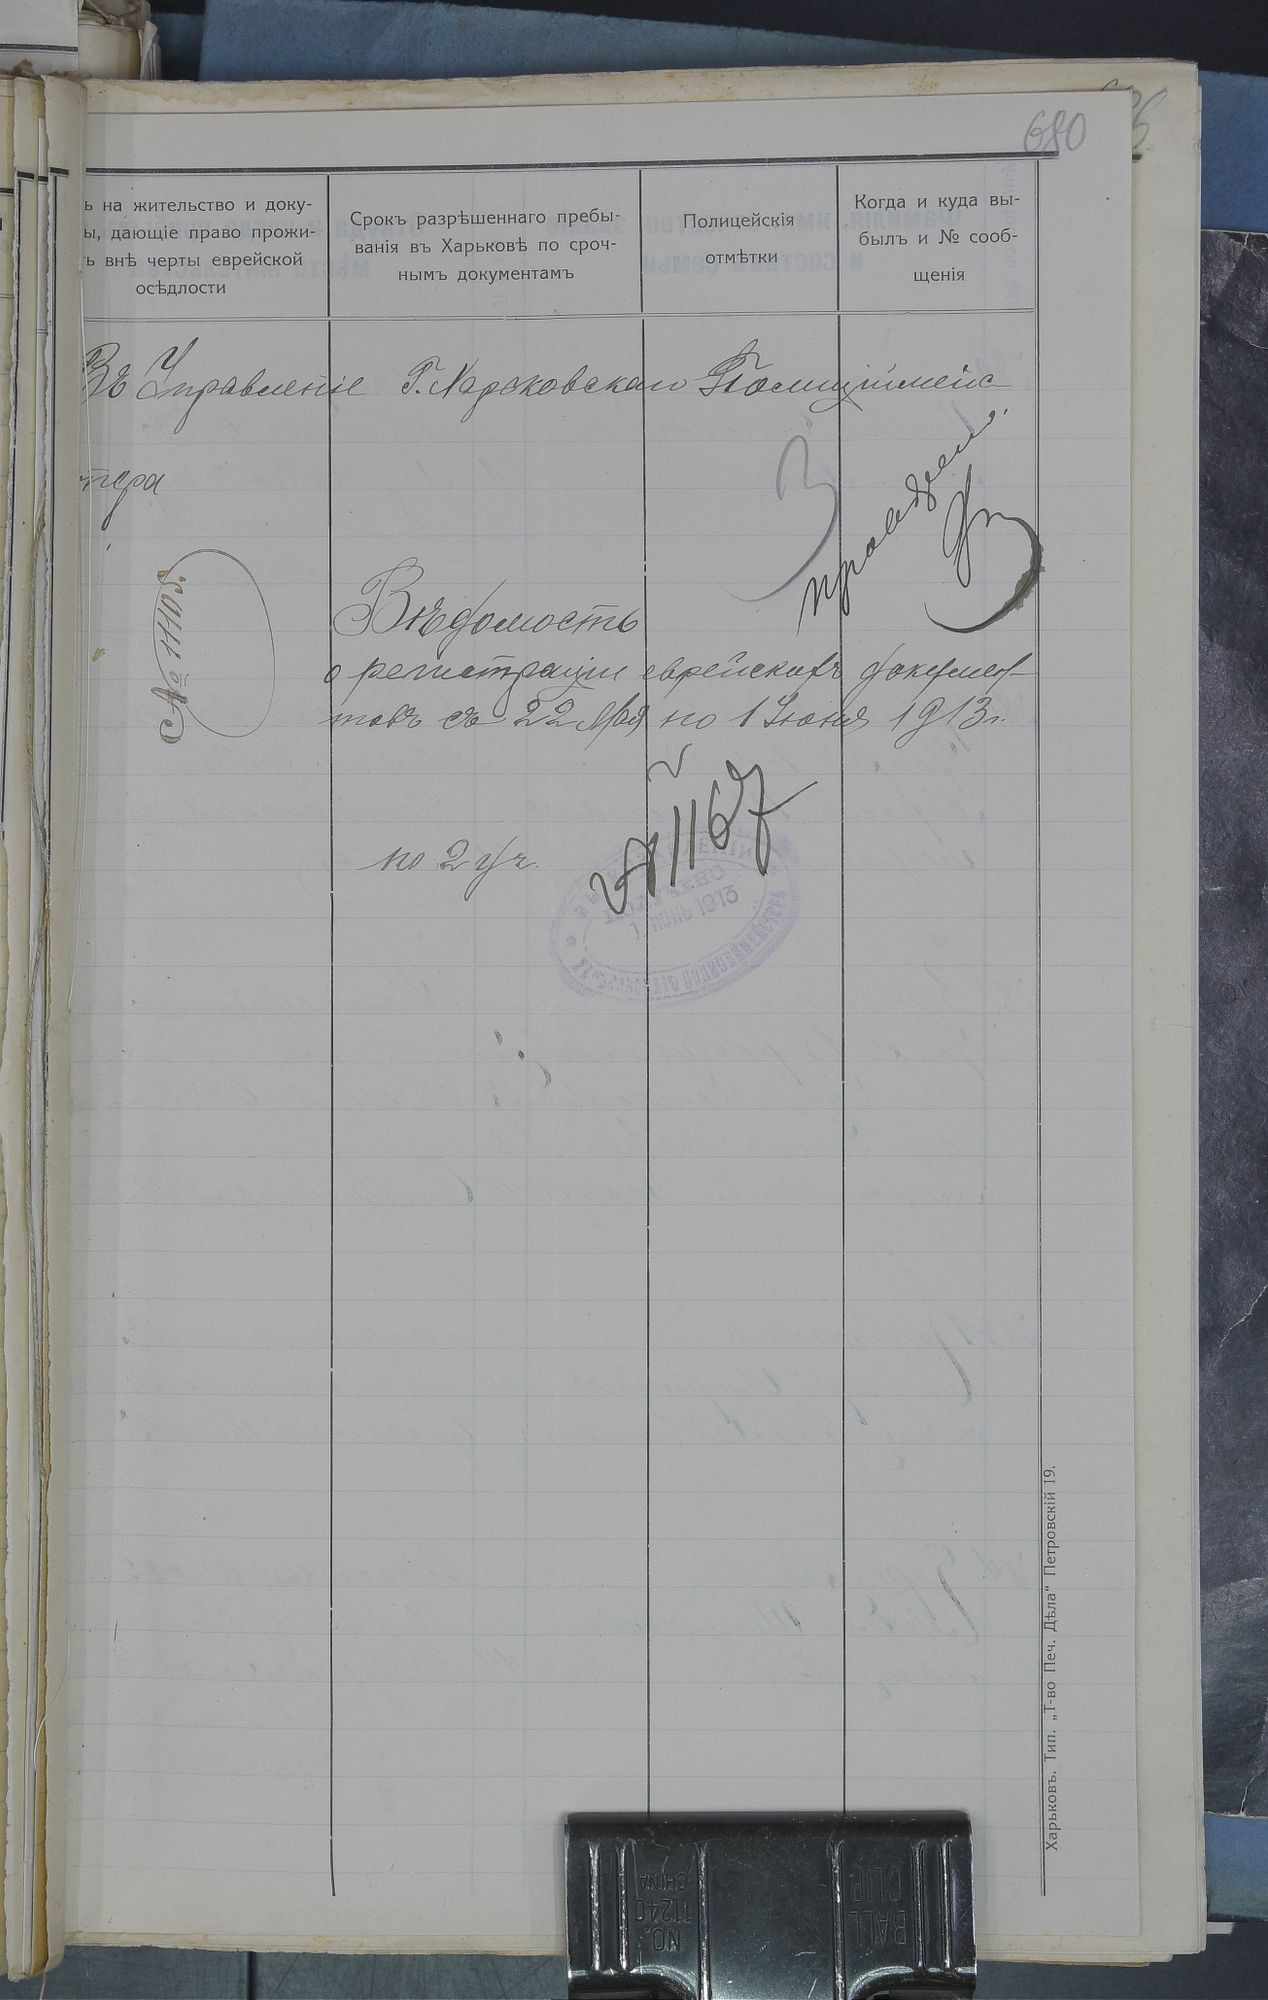 680
ъ на жительство и доку-
ы, дающіе право прожи-
ъ внѣ черты еврейской
осѣдлости
Срокъ разрѣшеннаго пребы-
ванія въ Харьковѣ по сроч-
нымъ документамъ
Полицейскія
отмѣтки
Когда и куда вы-
былъ и № сооб-
щенія
Въ Управленіе Г. Харьковскаго Полиціймейс
тера
3
№ 11105.
Вѣдомость
о регистраціи еврейскихъ докумен-
товъ съ 22 Мая по 1 Іюня 1913 г.
по 2 уч.
№ 1167
1 ІЮНЬ 1913
Харьковъ. Тип. „Т-во Печ. Дѣла“ Петровскій 19.
NO. 11240
CHINA
BALL
CLIP